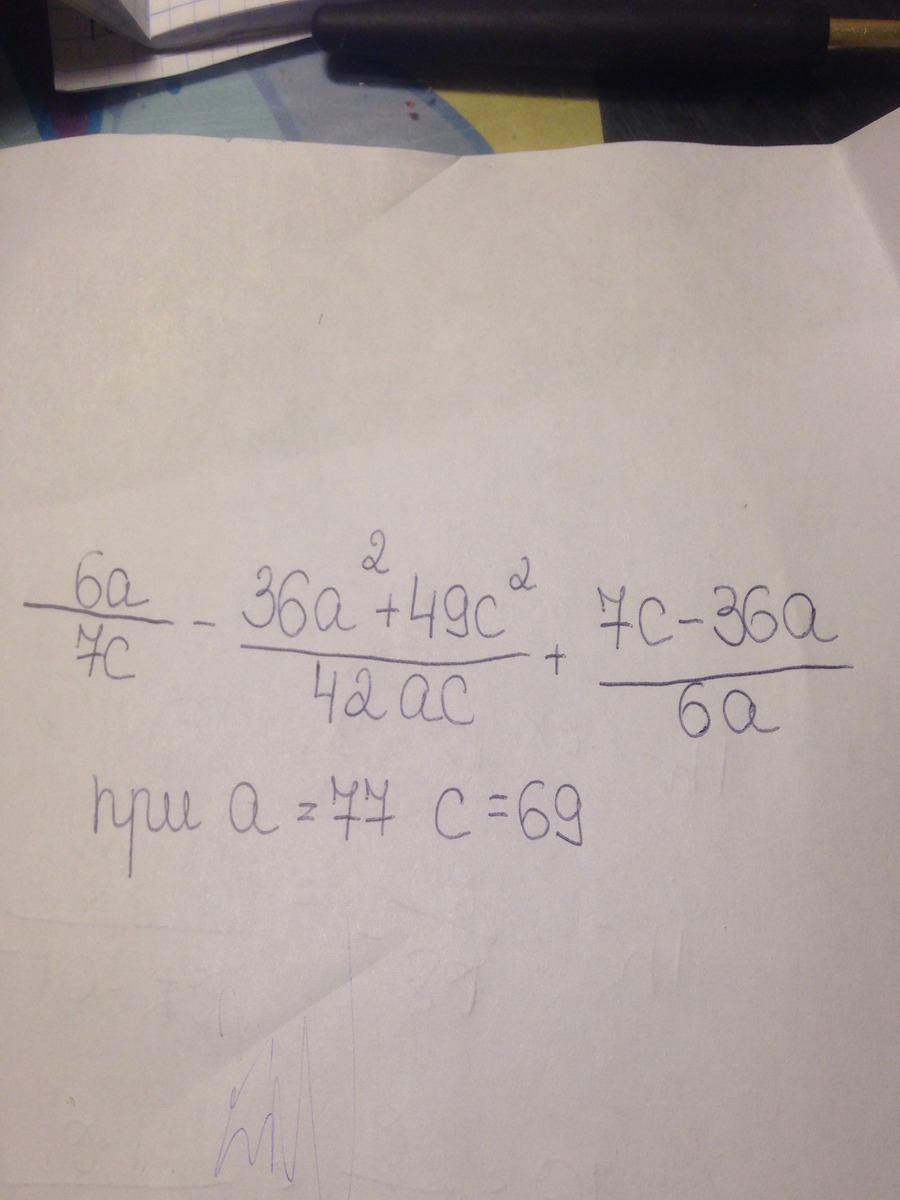 6a/7c - (36a² + 49c²)/42ac + (7c - 36a)/6a
при a = 77 c = 69